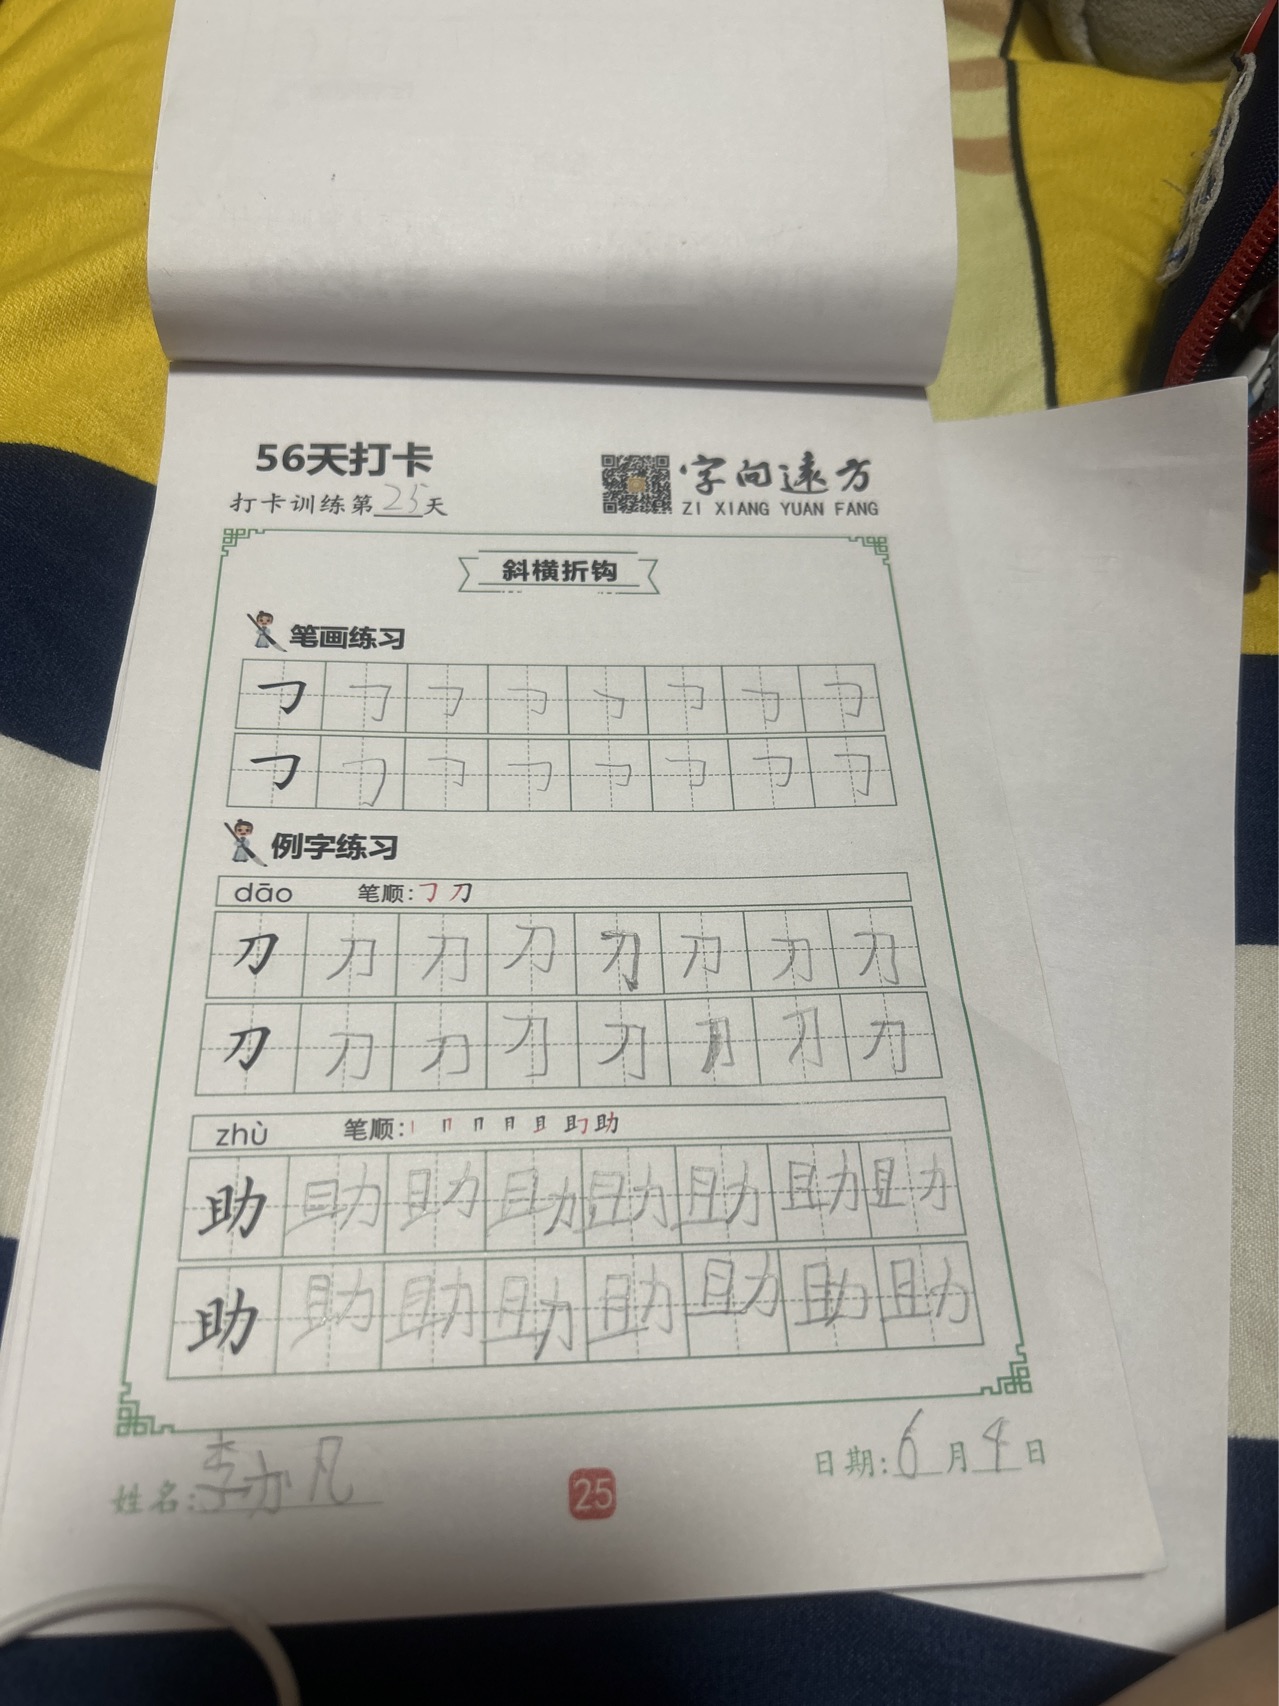 56天打卡
打卡训练第25天
字向远方
ZI XIANG YUAN FANG
斜横折钩
笔画练习
㇆ ㇆ ㇆ ㇆ ㇆ ㇆ ㇆ ㇆
㇆ ㇆ ㇆ ㇆ ㇆ ㇆ ㇆ ㇆
例字练习
dāo 笔顺:㇆ 刀
刀 刀 刀 刀 刀 刀 刀 刀
刀 刀 刀 刀 刀 刀 刀 刀
zhù 笔顺: 丨 冂 冂 月 且 助 助
助 助 助 助 助 助 助 助
助 助 助 助 助 助 助 助
姓名:李亦凡
25
日期:6月4日